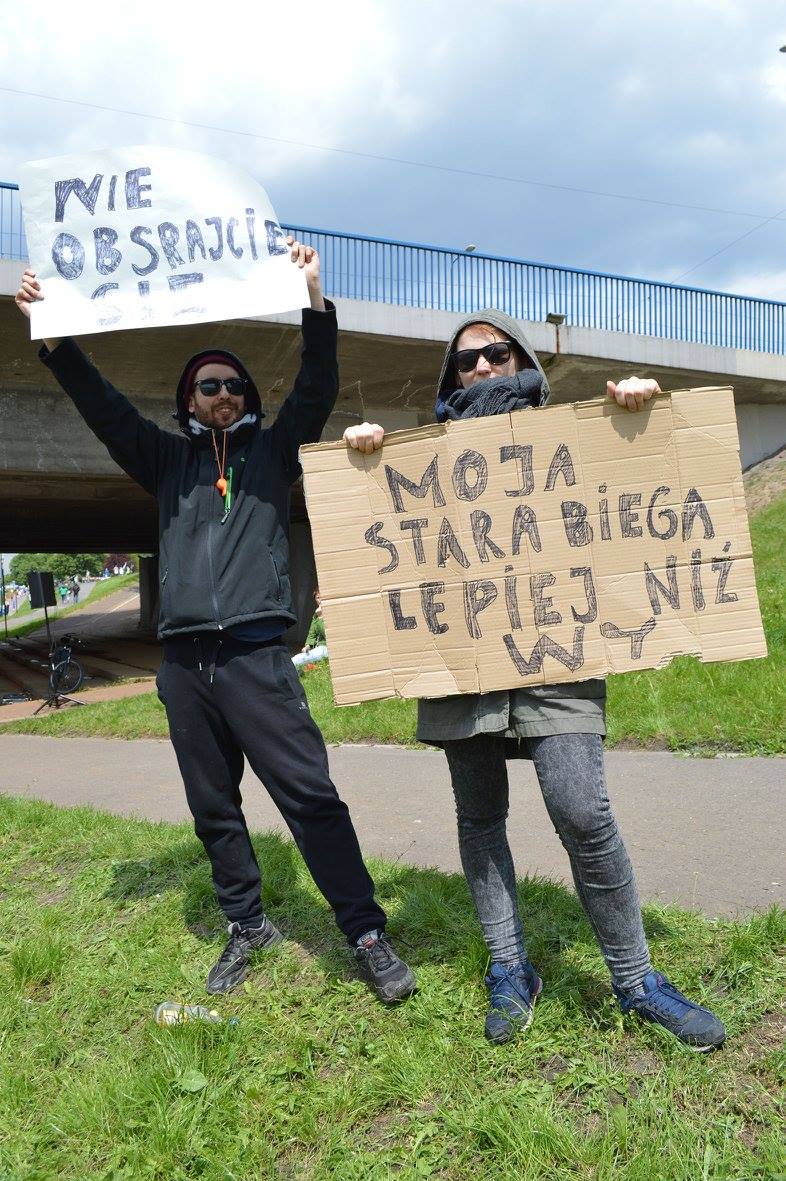 NIE
OBSRAJCIE
SIE
MOJA
STARA BIEGA
LEPIEJ NIŻ
WY